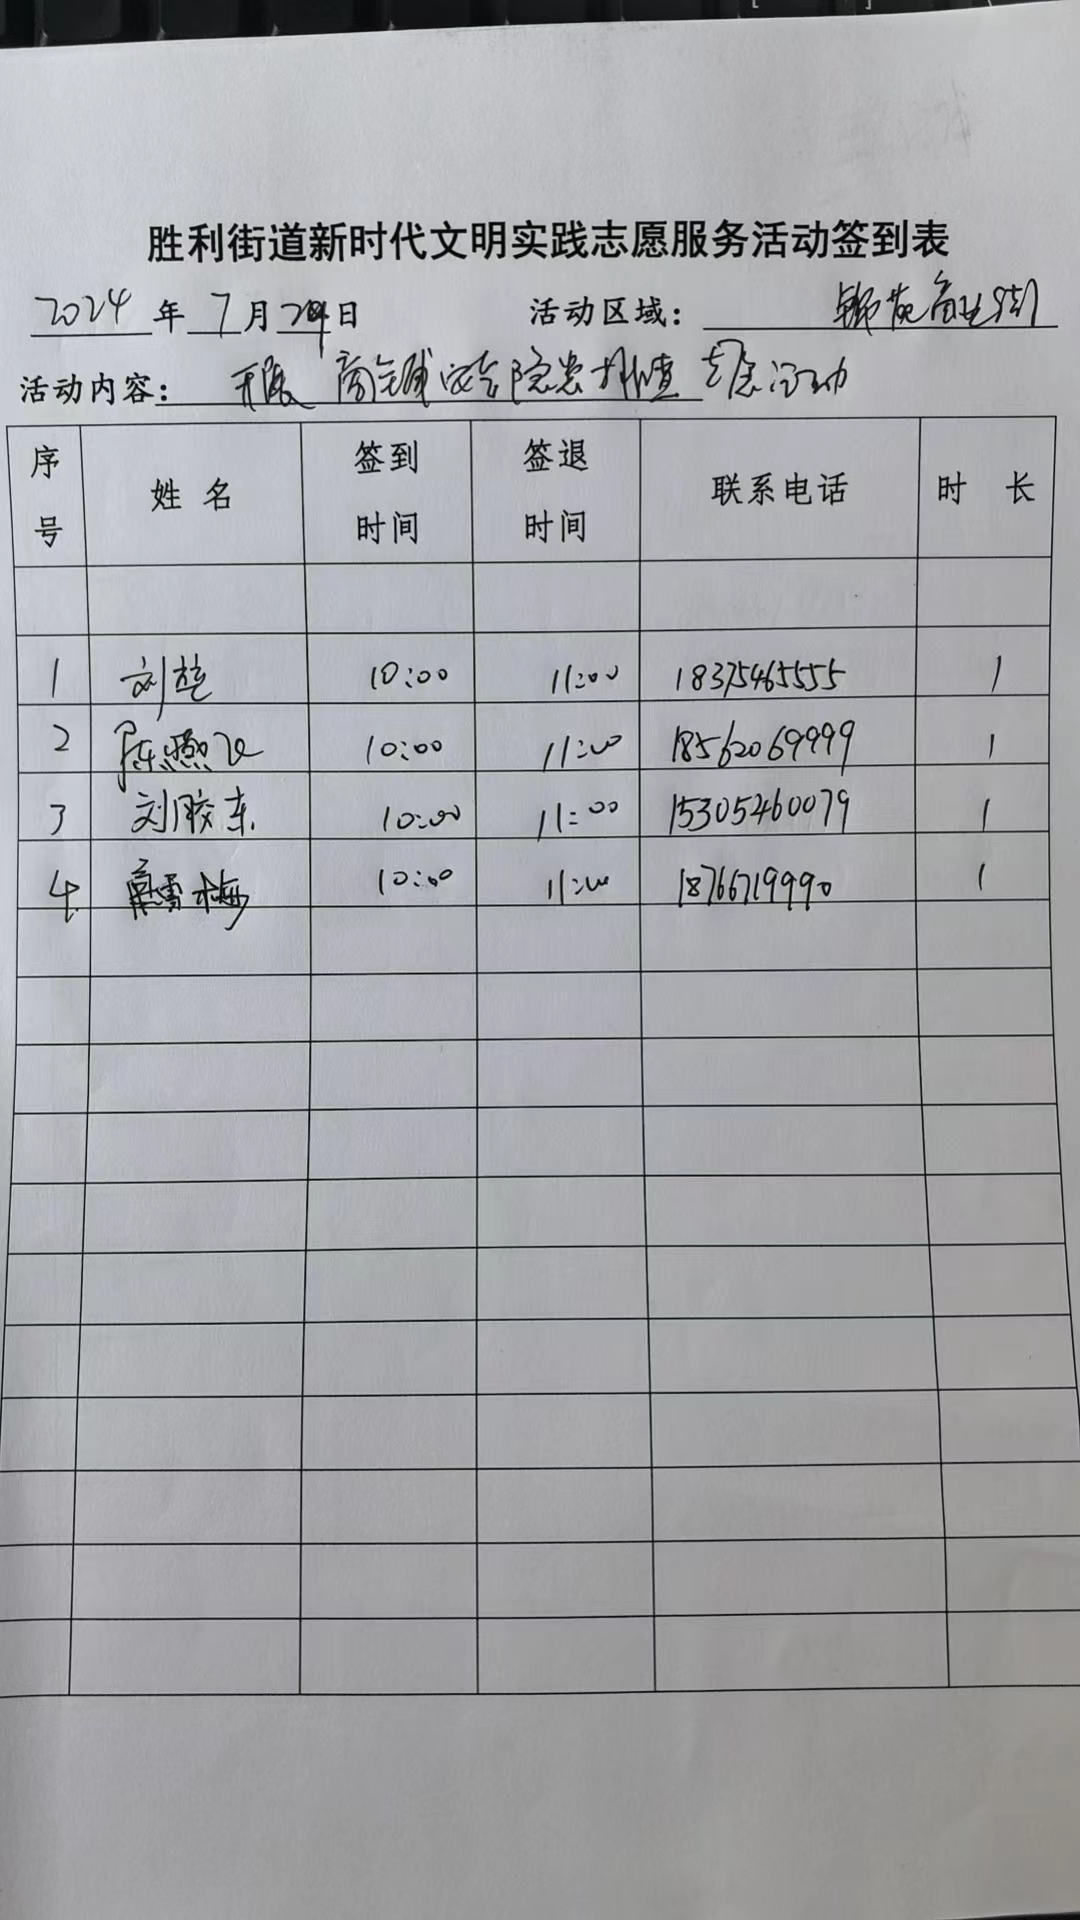 胜利街道新时代文明实践志愿服务活动签到表
2024 年 7 月 日 活动区域： 商业街
活动内容： 开展 商铺安全隐患排查 志愿活动
序号 姓名 签到时间 签退时间 联系电话 时长
1 刘楚 10:00 11:00 18375465555 1
2 陈燕飞 10:00 11:00 18562069999 1
3 刘胶东 10:00 11:00 15305460079 1
4 雪梅 10:00 11:00 18766719990 1